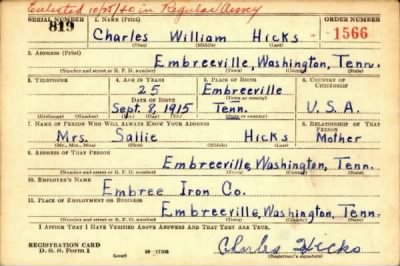 Enlisted 10/25/40 in Regular Army
SERIAL NUMBER 1. NAME (Print) ORDER NUMBER
819 Charles William Hicks 1566
(First) (Middle) (Last)
2. ADDRESS (Print)
Embreeville, Washington, Tenn.
(Number and street or R. F. D. number) (Town) (County) (State)
3. TELEPHONE 4. AGE IN YEARS 5. PLACE OF BIRTH 6. COUNTRY OF CITIZENSHIP
25 Embreeville
DATE OF BIRTH (Town or county)
Sept. 8, 1915 Tenn. U.S.A.
(Exchange) (Number) (Mo.) (Day) (Yr.) (State or country)
7. NAME OF PERSON WHO WILL ALWAYS KNOW YOUR ADDRESS 8. RELATIONSHIP OF THAT PERSON
Mrs. Sallie Hicks Mother
(Mr., Mrs., Miss) (First) (Middle) (Last)
9. ADDRESS OF THAT PERSON
Embreeville, Washington, Tenn.
(Number and street or R. F. D. number) (Town) (County) (State)
10. EMPLOYER'S NAME
Embree Iron Co.
11. PLACE OF EMPLOYMENT OR BUSINESS
Embreeville, Washington, Tenn.
(Number and street or R. F. D. number) (Town) (County) (State)
I AFFIRM THAT I HAVE VERIFIED ABOVE ANSWERS AND THAT THEY ARE TRUE.
REGISTRATION CARD
D. S. S. FORM 1 (over) Charles Hicks
(Registrant's signature)